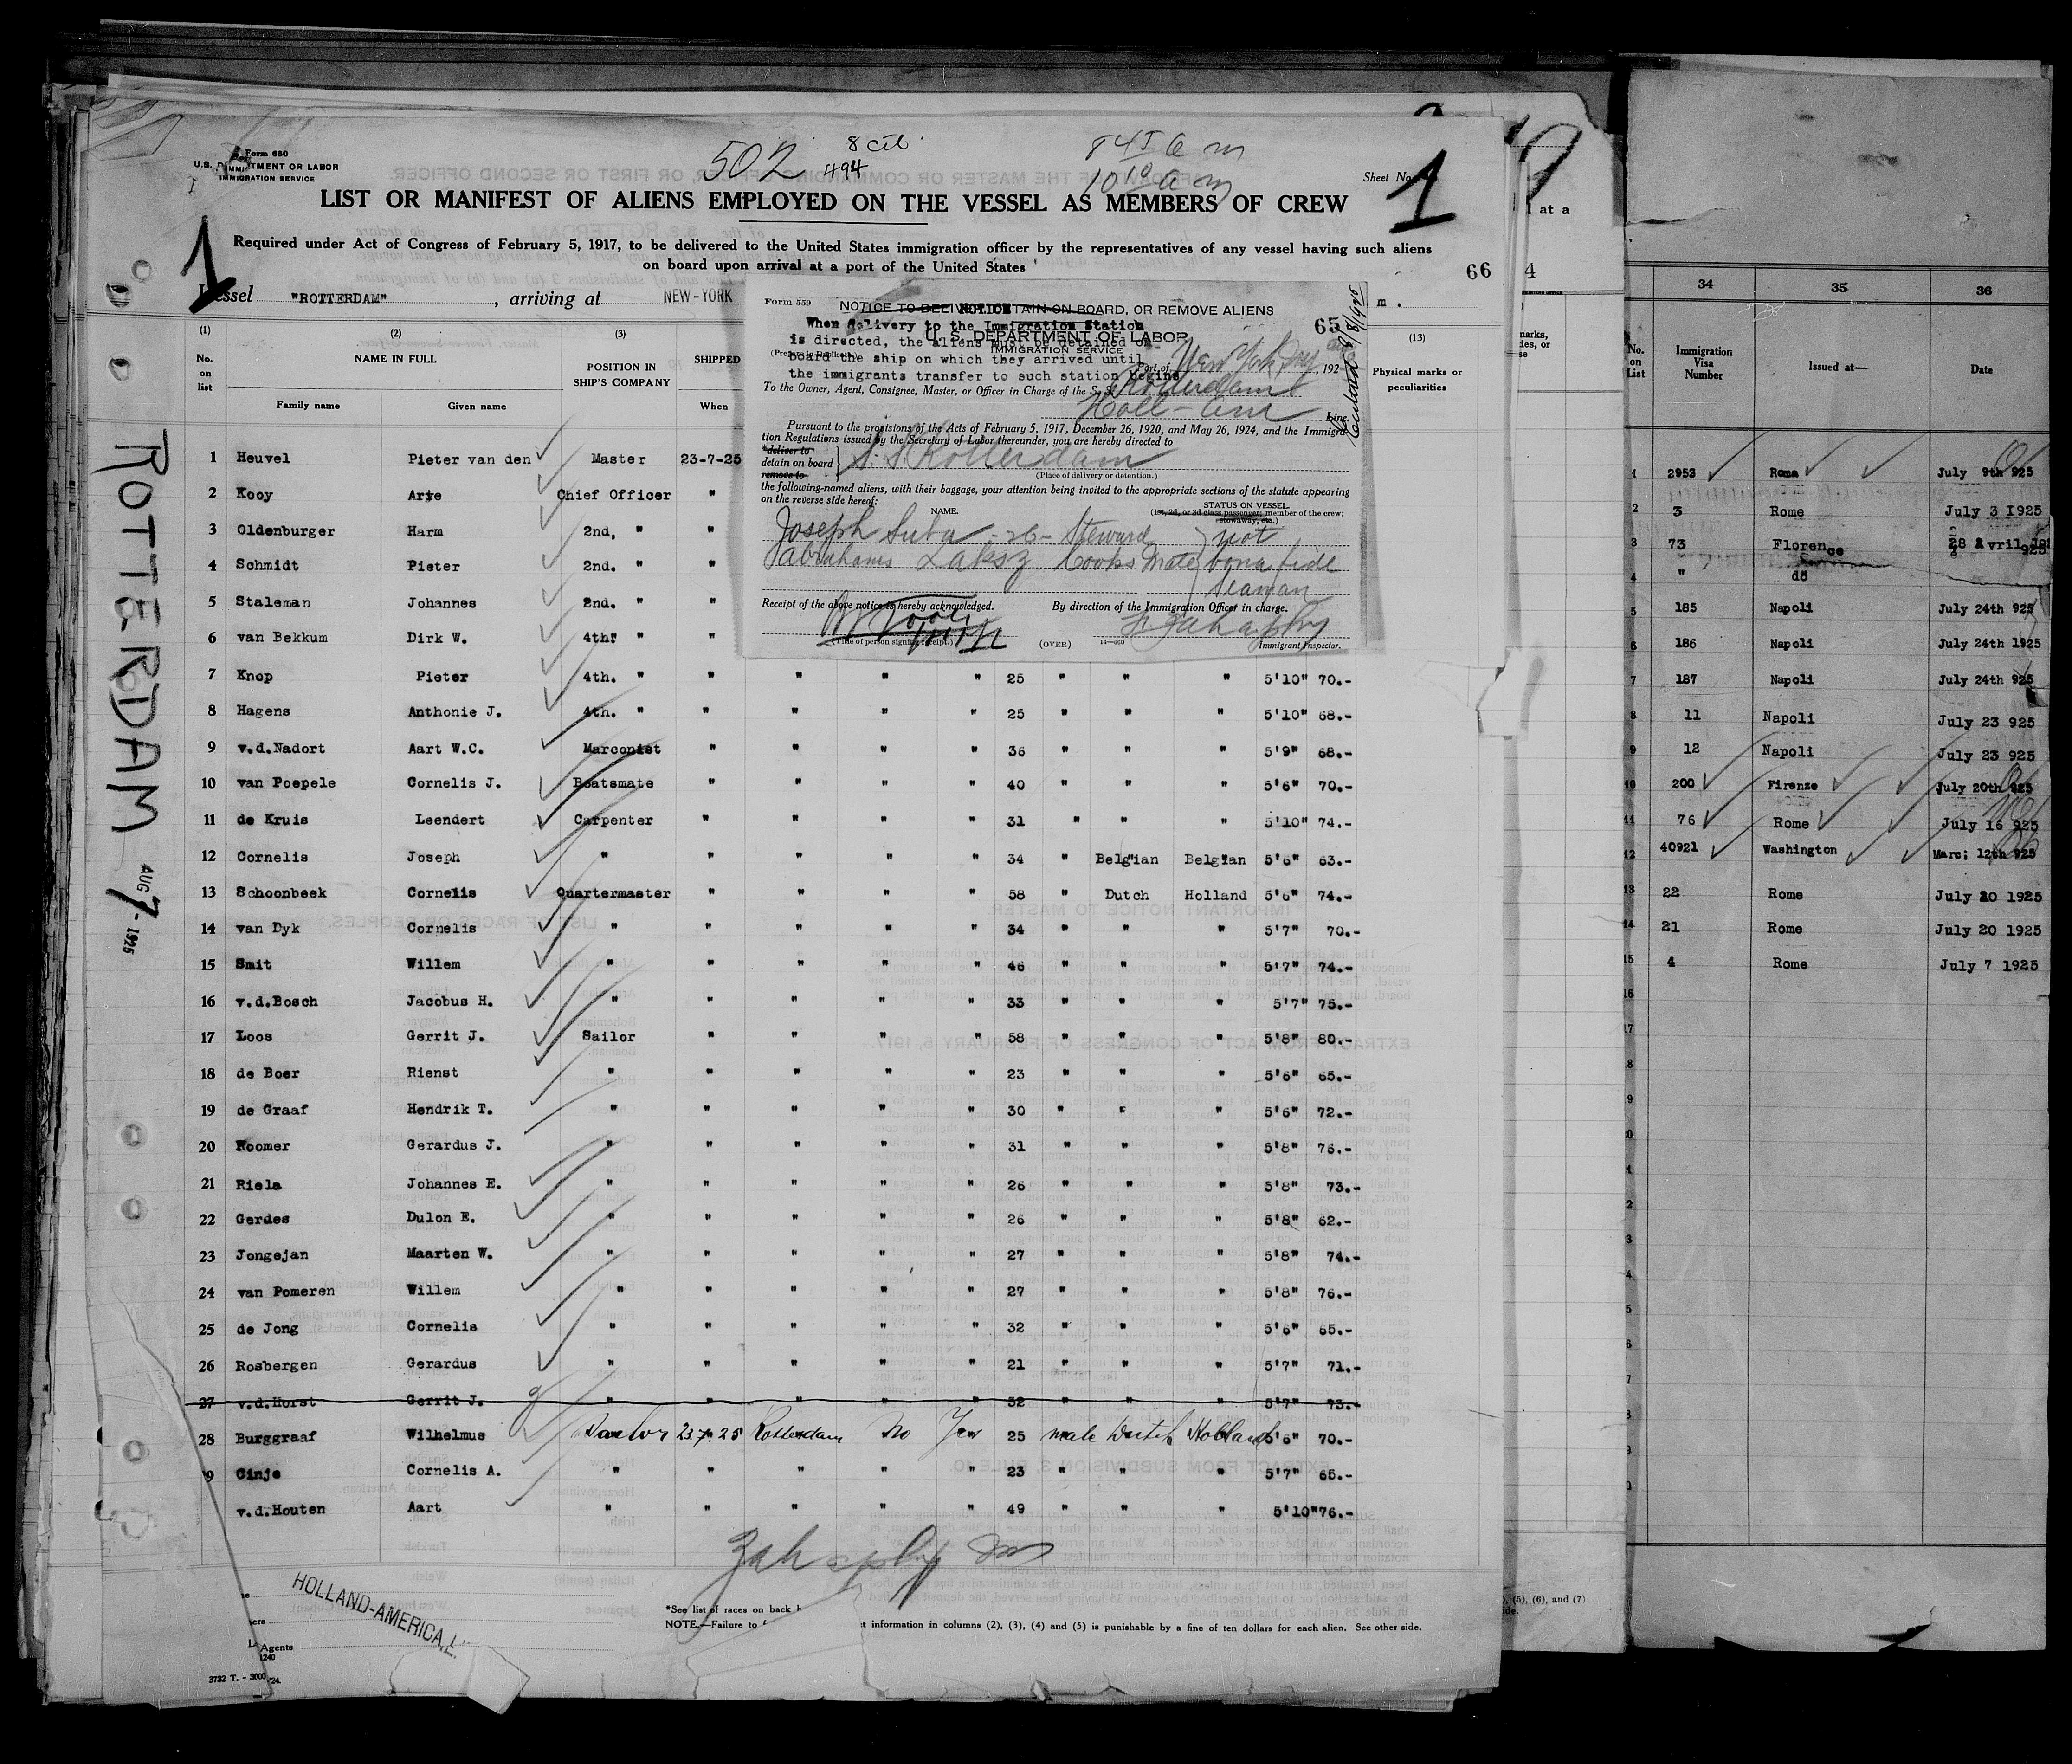 Form 680
U.S. DEPARTMENT OR LABOR
IMMIGRATION SERVICE
502
8 cit
494
845 a m
10 10 a m
Sheet No. 1
1
LIST OR MANIFEST OF ALIENS EMPLOYED ON THE VESSEL AS MEMBERS OF CREW
Required under Act of Congress of February 5, 1917, to be delivered to the United States immigration officer by the representatives of any vessel having such aliens
on board upon arrival at a port of the United States
66
Vessel "ROTTERDAM" , arriving at NEW-YORK
m .
(1) (2) (3) (13)
No. on list NAME IN FULL POSITION IN SHIP'S COMPANY SHIPPED Physical marks or peculiarities
Family name Given name When
Form 559
NOTICE TO DELIVER, DETAIN ON BOARD, OR REMOVE ALIENS
NOTICE
When delivery to the Immigration Station
is directed, the aliens must be detained on
board the ship on which they arrived until
the immigrants transfer to such station begins
65
U. S. DEPARTMENT OF LABOR
IMMIGRATION SERVICE
Port of New York , 192
To the Owner, Agent, Consignee, Master, or Officer in Charge of the S. S. Rotterdam
Holl-Am Line.
Pursuant to the provisions of the Acts of February 5, 1917, December 26, 1920, and May 26, 1924, and the Immigra-
tion Regulations issued by the Secretary of Labor thereunder, you are hereby directed to
*deliver to
detain on board
remove to
S. S. Rotterdam
(Place of delivery or detention.)
the following-named aliens, with their baggage, your attention being invited to the appropriate sections of the statute appearing
on the reverse side hereof:
NAME. STATUS ON VESSEL.
(1st, 2d, or 3d class passenger; member of the crew;
stowaway, etc.)
Joseph Suba - 26 - Steward not
Abrahams Laksz Cooks Mate bona fide
Seaman
Receipt of the above notice is hereby acknowledged. By direction of the Immigration Officer in charge.
(Title of person signing receipt.) (OVER) Immigrant Inspector.
1 Heuvel Pieter van den Master 23-7-25
2 Kooy Arie Chief Officer "
3 Oldenburger Harm 2nd. " "
4 Schmidt Pieter 2nd. " "
5 Staleman Johannes 2nd. " "
6 van Bekkum Dirk W. 4th. " "
7 Knop Pieter 4th. " " " " " 25 " " " 5'10" 70.-
8 Hagens Anthonie J. 4th. " " " " " 25 " " " 5'10" 68.-
9 v.d.Nadort Aart W.C. Marconist " " " " 36 " " " 5'9" 68.-
10 van Poepele Cornelis J. Boatsmate " " " " 40 " " " 5'6" 70.-
11 de Kruis Leendert Carpenter " " " " 31 " " " 5'10" 74.-
12 Cornelis Joseph " " " " " 34 " Belgian Belgian 5'6" 63.-
13 Schoonbeek Cornelis Quartermaster " " " " 58 " Dutch Holland 5'6" 74.-
14 van Dyk Cornelis " " " " " 34 " " " 5'7" 70.-
15 Smit Willem " " " " " 46 " " " 5'7" 74.-
16 v.d.Bosch Jacobus H. " " " " " 33 " " " 5'7" 75.-
17 Loos Gerrit J. Sailor " " " " 58 " " " 5'8" 80.-
18 de Boer Rienst " " " " " 23 " " " 5'6" 65.-
19 de Graaf Hendrik T. " " " " " 30 " " " 5'6" 72.-
20 Roomer Gerardus J. " " " " " 31 " " " 5'8" 76.-
21 Riela Johannes E. " " " " " 26 " " " 5'8" 73.-
22 Gerdes Dulon E. " " " " " 26 " " " 5'8" 62.-
23 Jongejan Maarten W. " " " " " 27 " " " 5'8" 74.-
24 van Pomeren Willem " " " " " 27 " " " 5'8" 76.-
25 de Jong Cornelis " " " " " 32 " " " 5'6" 65.-
26 Rosbergen Gerardus " " " " " 21 " " " 5'7" 71.-
27 v.d.Horst Gerrit J. " " " " " 32 " " " 5'7" 73.-
28 Burggraaf Wilhelmus Sailor 23.7.25 Rotterdam No Yes 25 male Dutch Holland 5'6" 70.-
9 Cinje Cornelis A. " " " " " 23 " " " 5'7" 65.-
v.d.Houten Aart " " " " " 49 " " " 5'10" 76.-
HOLLAND-AMERICA
Agents
1240
3732 T. - 3000 /24.
*See list of races on back
NOTE.—Failure to information in columns (2), (3), (4) and (5) is punishable by a fine of ten dollars for each alien. See other side.
ROTTERDAM
AUG 7 - 1925
at a
4
, (5), (6), and (7)
34 35 36
No. on List Immigration Visa Number Issued at— Date
1 2953 Roma July 9th 925
2 3 Rome July 3 1925
3 73 Florence 28 Avril 1925
4 " dö
5 185 Napoli July 24th 925
6 186 Napoli July 24th 1925
7 187 Napoli July 24th 925
8 11 Napoli July 23 925
9 12 Napoli July 23 925
10 200 Firenze July 20th 925
11 76 Rome July 16 925
12 40921 Washington Marc; 12th 925
13 22 Rome July 20 1925
14 21 Rome July 20 1925
15 4 Rome July 7 1925
16
17
8
9
0
1
2
3
4
5
6
7
8
9
0